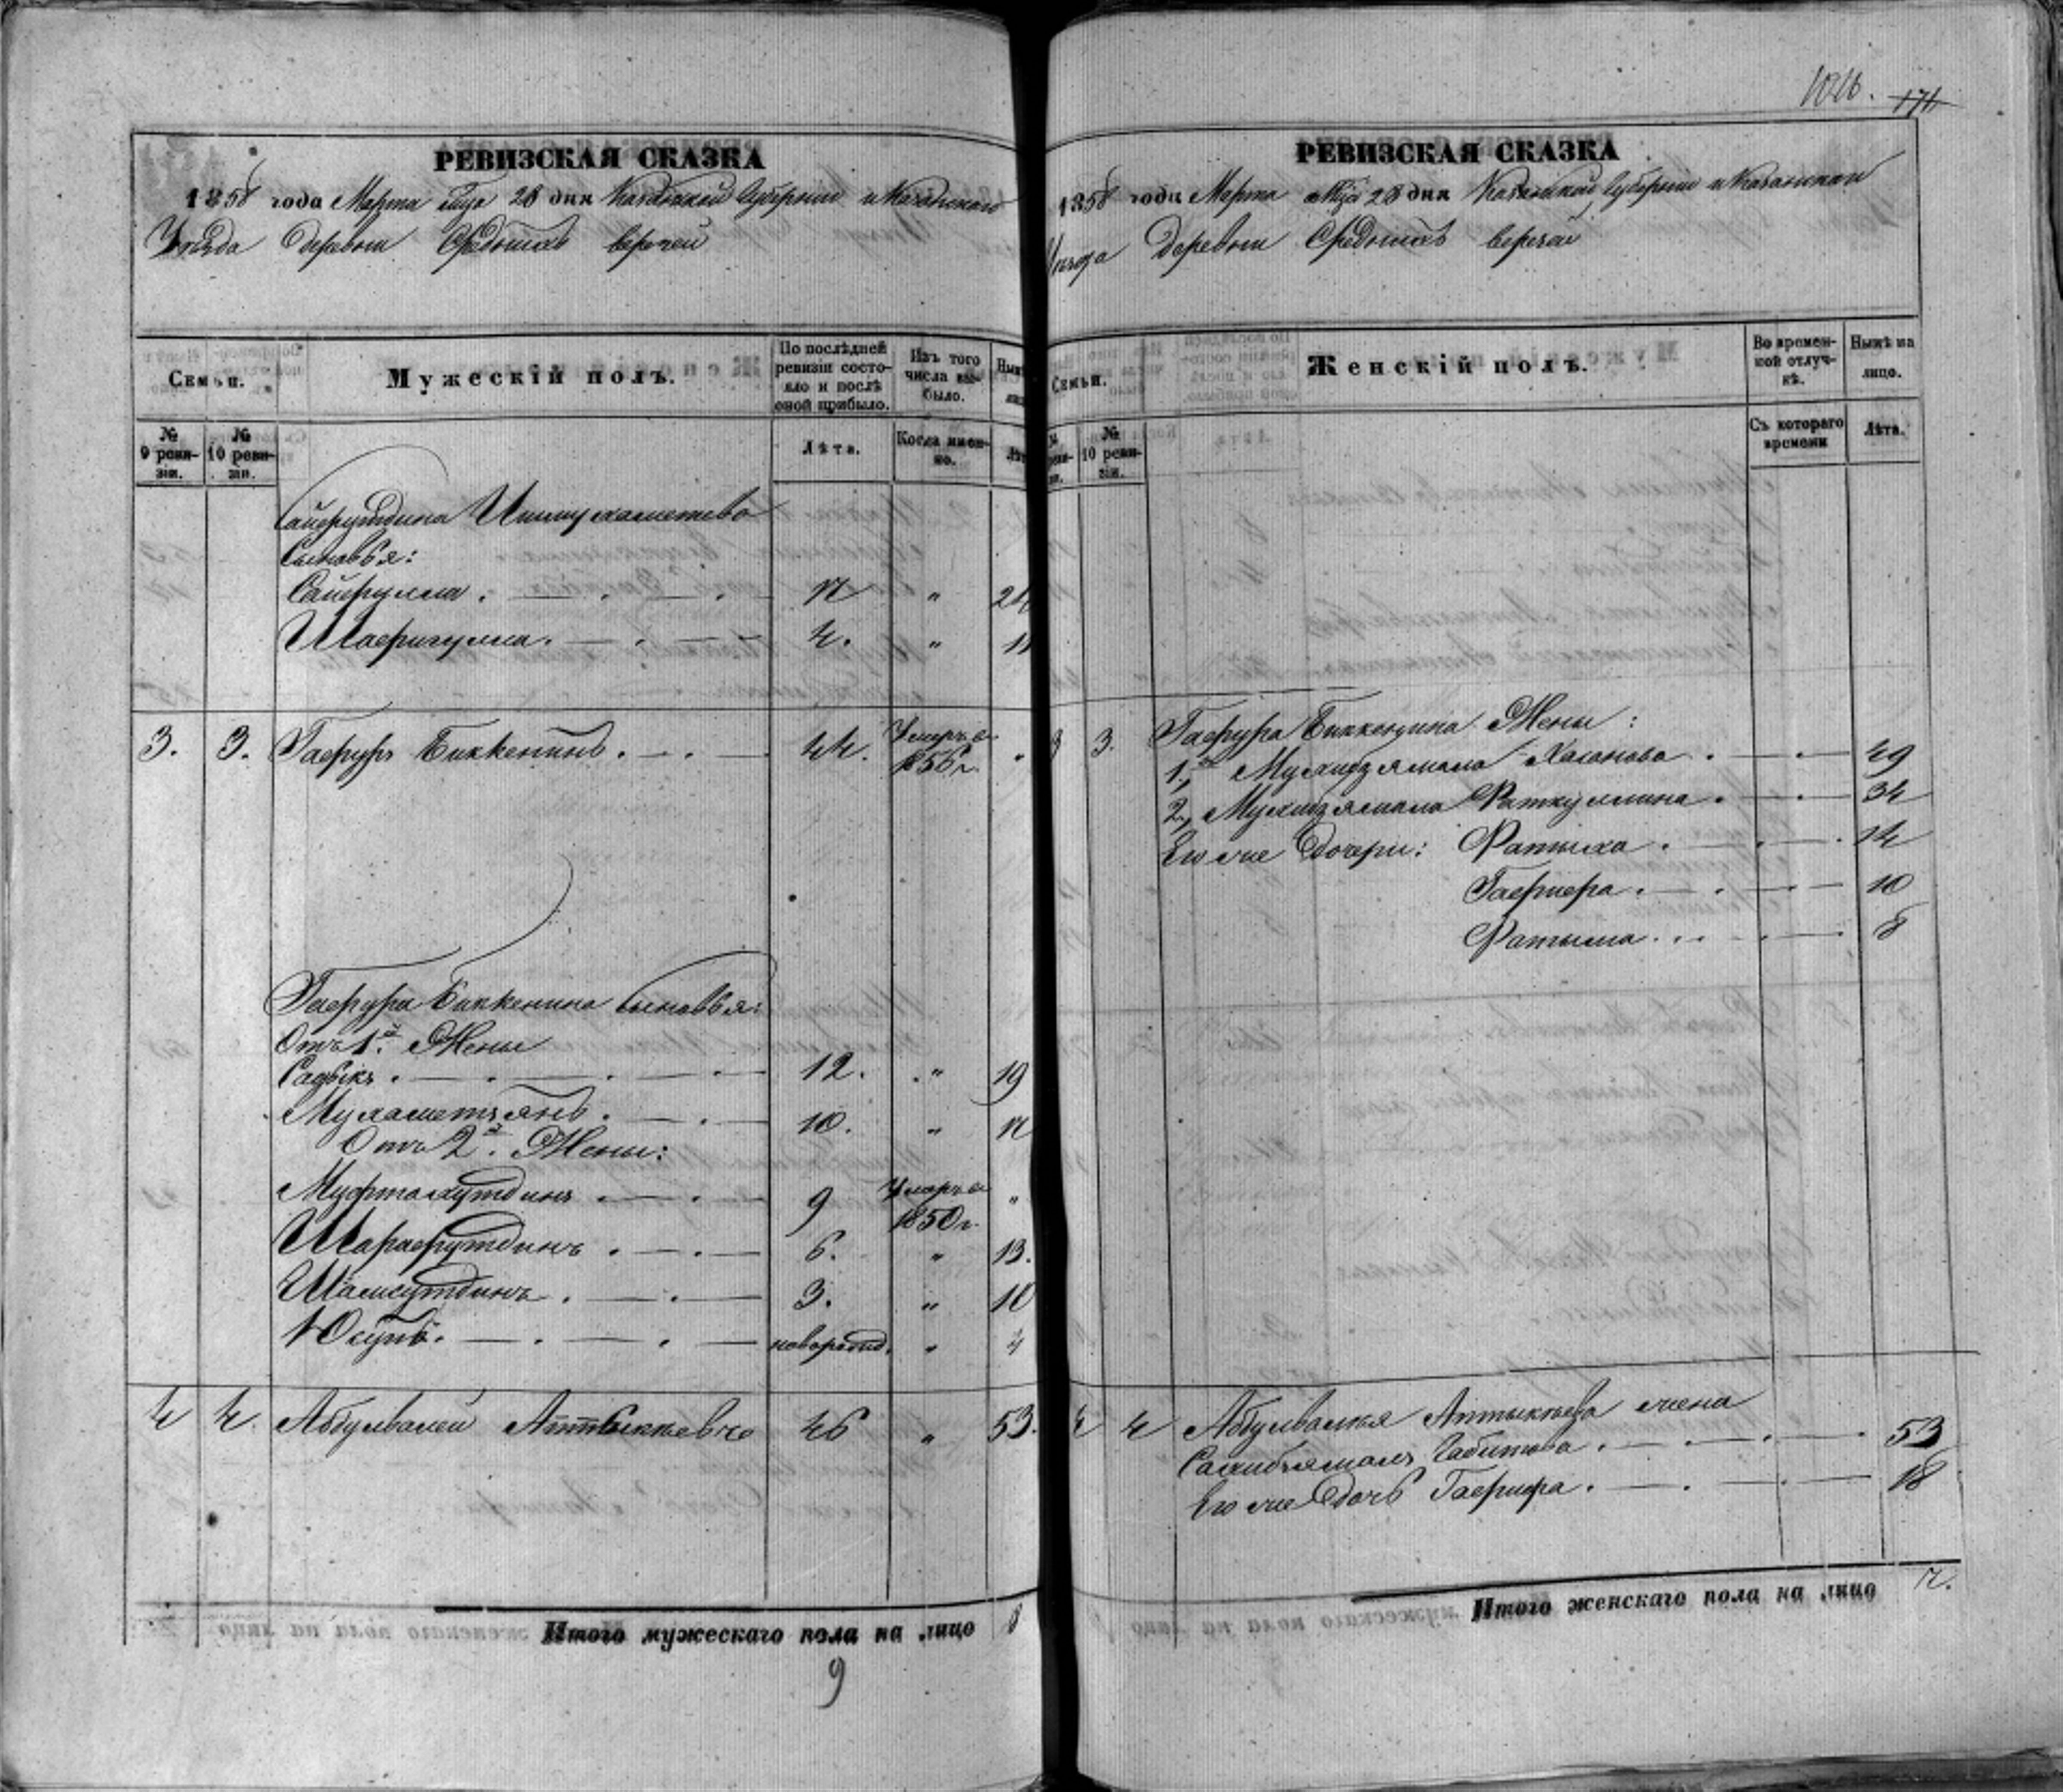 РЕВИЗСКАЯ СКАЗКА
1858 года Марта м҃ца 28 дня Казанской Губернии и Казанскаго
Уѣзда деревни Среднихъ верезей
Семьи.
Мужескій полъ.
По послѣдней ревизіи состояло и послѣ оной прибыло.
Изъ того числа выбыло.
№ 9 ревизіи.
№ 10 ревизіи.
Лѣта.
Когда именно.
Сайфутдина Ишмухаметева
Сыновья:
Сайфулла . 17 " 24
Шафигулла . 4. " 11
3. 3. Гафуръ Биккенинъ . 44. Умеръ въ 1856 г. "
Гафура Биккенина сыновья:
Отъ 1й Жены
Садыкъ . 12. " 19
Мухаметзянъ . 10. " 17
Отъ 2й Жены:
Мифтахутдинъ . 9 Умеръ въ 1850 г. "
Шарафутдинъ . 6. " 13.
Шамсутдинъ . 3. " 10
Юсупъ . новорожд. "
4 4. Абдулвалей Аптыкѣевъ 46 " 53.
Итого мужескаго пола на лицо 8
9
1016. 171
РЕВИЗСКАЯ СКАЗКА
1858 года Марта м҃ца 28 дня Казанской Губернии и Казанскаго
Уѣзда Деревни Среднихъ верезей
Семьи.
Женскій полъ.
Во временной отлучкѣ.
Нынѣ на лицо.
№ 10 ревизіи.
Съ котораго времени
Лѣта.
3 3. Гафура Биккенина Жены:
1я, Мухидзямала Хасанова . 49
2, Мухидзямала Раткуллина . 34
Его же Дочери: Фатыха . 14
Гафиера . 10
Фатыма . 8
4 4 Абдулвалея Аптыкѣева жена
Сахибзямалъ Габитова . 53
Его же Дочь Гафифа . 18
Итого женскаго пола на лицо 7.